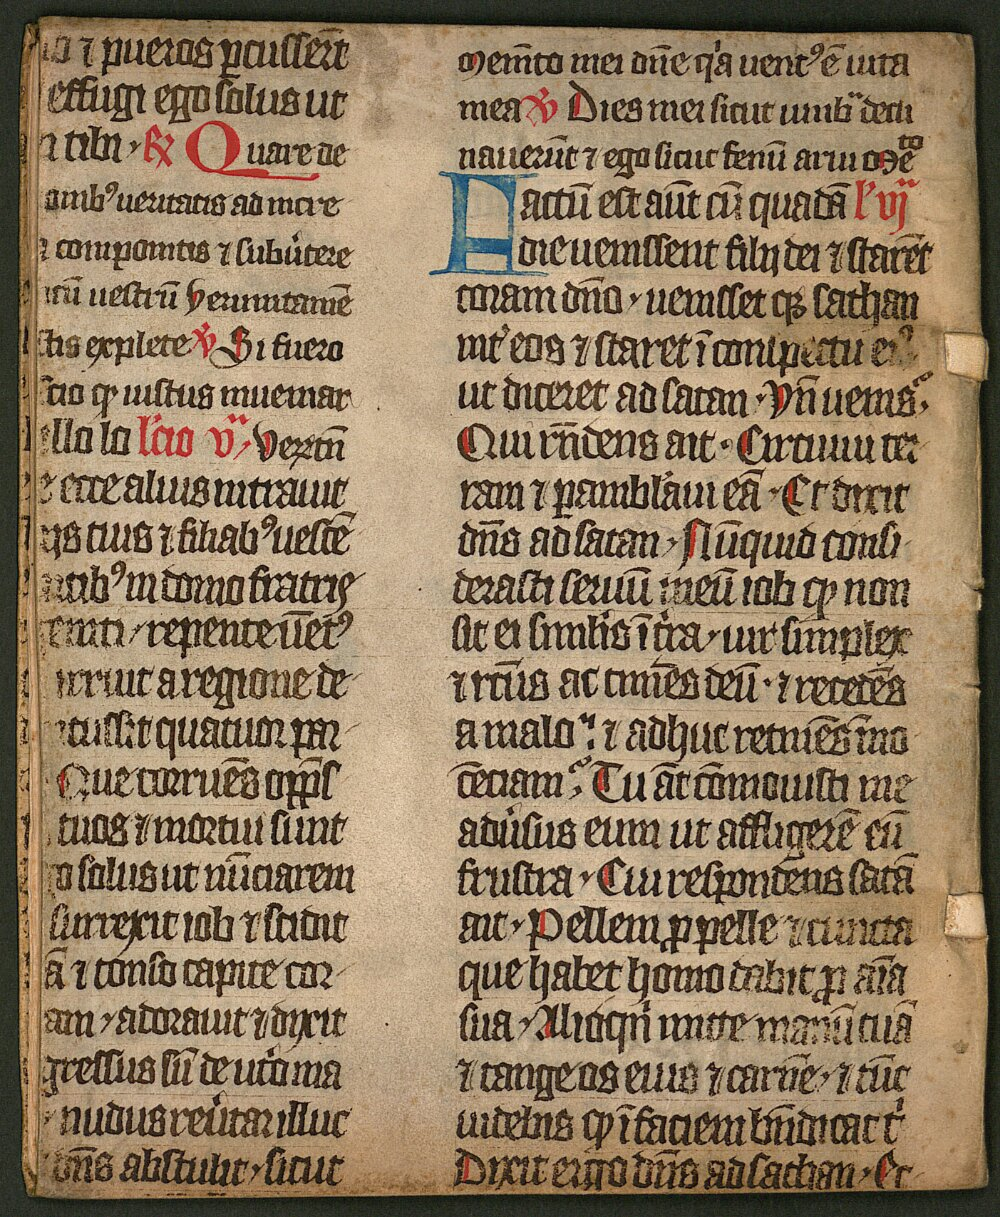 ⁊ pueros ꝑcusserūt
effugi ego solus ut
tibi · ℟ Quare de
ambꝰ ueritatis ad incre
componitis ⁊ subu̓tere
uestrū Verumtamē
explete ℣ Si fuero
iustus inueniar
lc̄io vᵃ, Verꝫtn̄
ecce alius intrauit
tuis ⁊ filiabꝰ uescē
in domo fratris
repente uētꝰ
irruit a regione de
quatuor par
Que corruēs opp̄s̄
tuos ⁊ mortui sunt
solus ut nūciarem
surrexit iob ⁊ scidit
⁊ tonso capite cor
adorauit ⁊ dixit
sū de ut̓o ma
nudus reu̓tar illuc
dn̄s abstulit, sicut
Memēto mei dn̄e q̓a uentꝰ ē uita
mea ℣ Dies mei sicut umbᵃ decli
nauerūt ⁊ ego sicut fenū arui Mēᵗᵒ
Factū est aūt cū quadā l' vjᵃ
die uenissent filij dei ⁊ starēt
coram dn̄o, uenisset qꝫ sathan
int̓ eos ⁊ staret ī conspectu eiꝰ
ut diceret ad satan · Vn̄ uenis,
Qui rn̄dens ait · Circuiui ter
ram ⁊ ꝑambl̓aui eā · Et dixit
dn̄s ad satan, Nūquid consi
derasti seruū meū iob ꝙ non
sit ei simil̓is ī t̓ra, uir simplex
⁊ rc̄us ac timēs deū · ⁊ recedēs
a malo ⁊ adhuc retinēs īno
cēciam, Tu āt cōmouisti me
adu̓sus eum ut affligerē eū
frustra, Cui respondens satā
ait, Pellem ꝓ pelle ⁊ cuncta
que habet homo dabit ꝓ aīa
sua, Alioqn̄ mitte manū tuā
⁊ tange os eius ⁊ carnē, ⁊ tūc
uidebis ꝙ ī faciem bn̄dicat t̓
Dixit ergo dn̄s ad sathan, Et